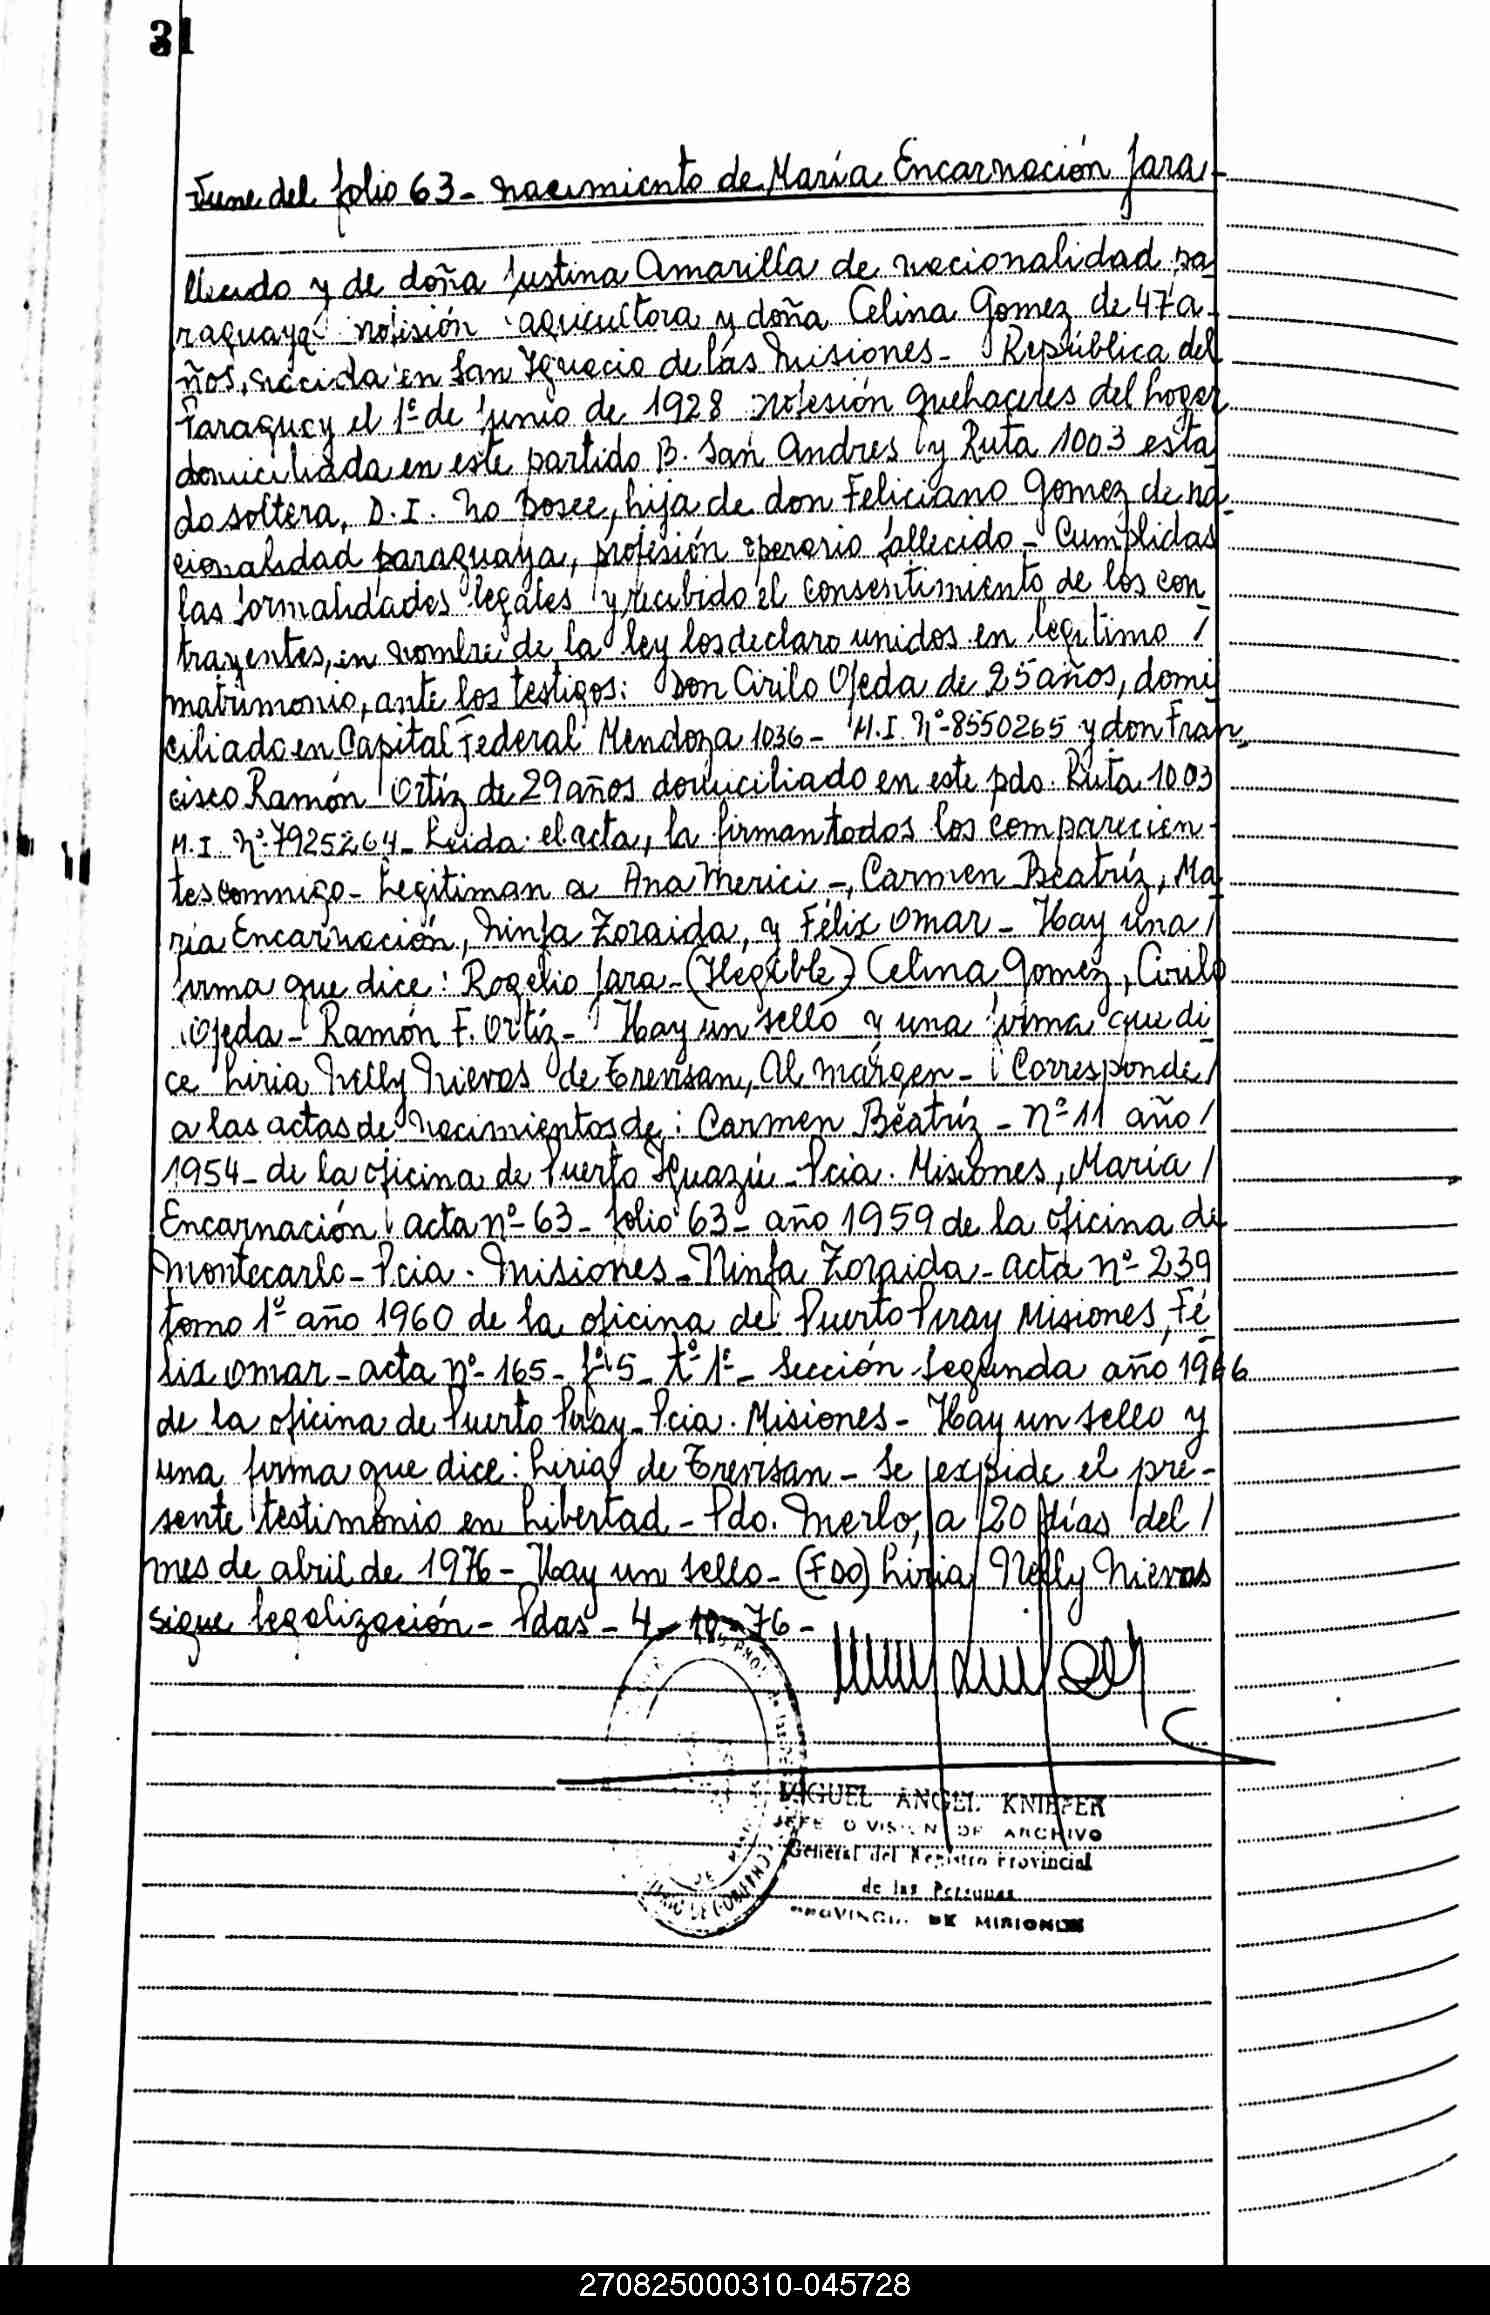 31
Viene del folio 63 - nacimiento de María Encarnación Jara -
llecido y de doña Justina Amarilla de nacionalidad pa
raguaya profesión agricultora y doña Celina Gomez de 47 a-
ños, nacida en San Ignacio de las Misiones - República del
Paraguay el 1º de Junio de 1928 profesión quehaceres del hogar
domiciliada en este partido B. San Andres y Ruta 1003 esta
do soltera, D.I. No Posee, hija de don Feliciano Gomez de na-
cionalidad paraguaya, profesión operario fallecido - Cumplidas
las formalidades legales y recibido el consentimiento de los con
trayentes, en nombre de la ley los declaro unidos en legitimo /
matrimonio, ante los testigos: Don Cirilo Ojeda de 25 años, domi
ciliado en Capital Federal Mendoza 1036 - M.I. Nº-8550265 y don Fran-
cisco Ramón Ortíz de 29 años domiciliado en este pdo. Ruta 1003
M.I. Nº 7925264 - Leida el acta, la firman todos los comparecien-
tes conmigo - Legitiman a Ana Merici -, Carmen Beatríz, Ma
ría Encarnación, Ninfa Zoraida, y Félix Omar - Hay una /
firma que dice: Rogelio Jara - (Ilegible) Celina Gomez, Cirilo
Ojeda - Ramón F. Ortíz - Hay un sello y una firma que di
ce Liria Nelly Nievas de Trevisan, Al márgen - Corresponde /
a las actas de nacimientos de: Carmen Beatríz - nº 11 año /
1954 - de la oficina de Puerto Iguazú - Pcia. Misiones, María /
Encarnación acta nº 63 - folio 63 - año 1959 de la oficina de
Montecarlo - Pcia. Misiones - Ninfa Zoraida - acta nº 239
tomo 1º año 1960 de la oficina de Puerto Piray Misiones, Fé
lix Omar - acta nº 165 - fº 5 - tº 1º - Sección Segunda año 1966
de la oficina de Puerto Piray - Pcia. Misiones - Hay un sello y
una firma que dice: Liria de Trevisan - Se expide el pre-
sente testimonio en Libertad - Pdo. Merlo, a 20 días del /
mes de abril de 1976 - Hay un sello - (FDO) Liria Nelly Nievas
sigue legalización - Pdas - 4 - 10 - 76 -
MIGUEL ANGEL KNIEPER
JEFE DIVISION DE ARCHIVO
General del Registro Provincial
de las Personas
PROVINCIA DE MISIONES
270825000310-045728